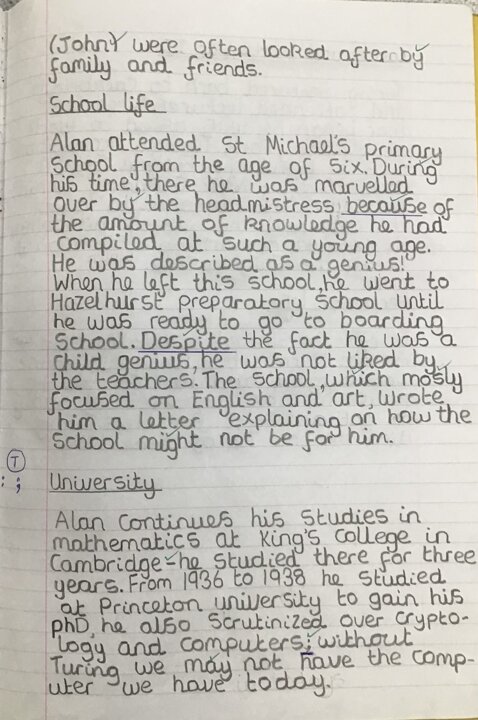 (John) were often looked after by
family and friends.
School life
Alan attended St Michael's primary
School from the age of six. During
his time, there he was marvelled
over by the headmistress because of
the amount of knowledge he had
compiled at such a young age.
He was described as a genius!
When he left this school, he went to
Hazelhurst preparatory school until
he was ready to go to boarding
School. Despite the fact he was a
child genius, he was not liked by
the teachers. The school, which mosly
focused on English and art, wrote
him a letter explaining on how the
school might not be for him.
T
: ;
University
Alan continues his studies in
mathematics at King's College in
Cambridge - he studied there for three
years. From 1936 to 1938 he studied
at Princeton university to gain his
phD, he also scrutinized over crypto-
logy and computers; without
Turing we may not have the comp-
uter we have today.